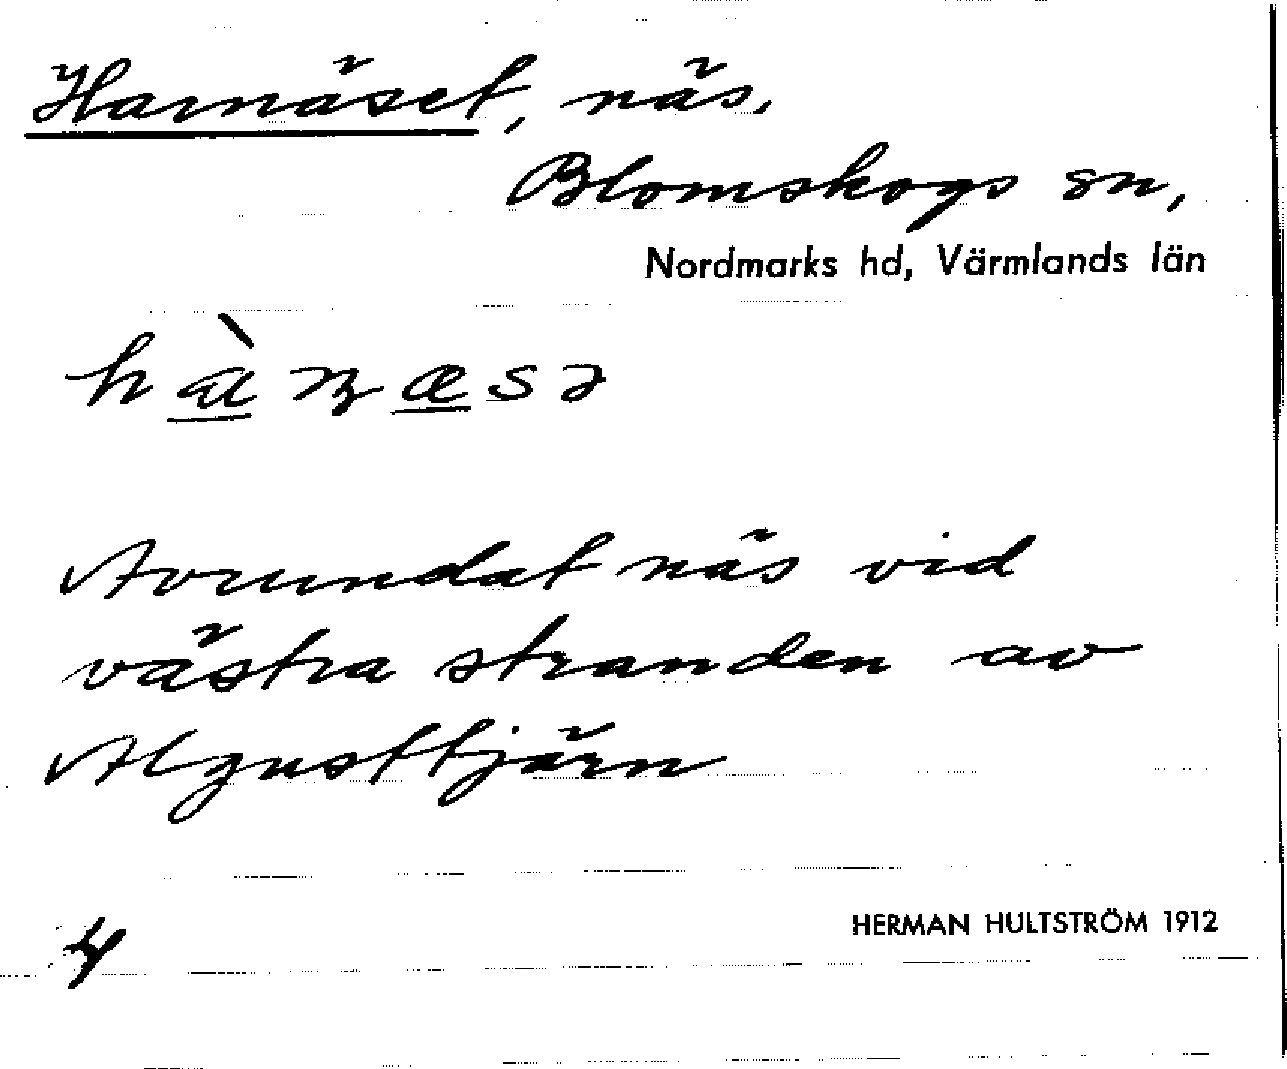 Harnäset, näs,
Blomskogs sn,
Nordmarks hd, Värmlands län
Avrundat näs vid
västra stranden av
Algusttjärn
HERMAN HULTSTRÖM 1912
4